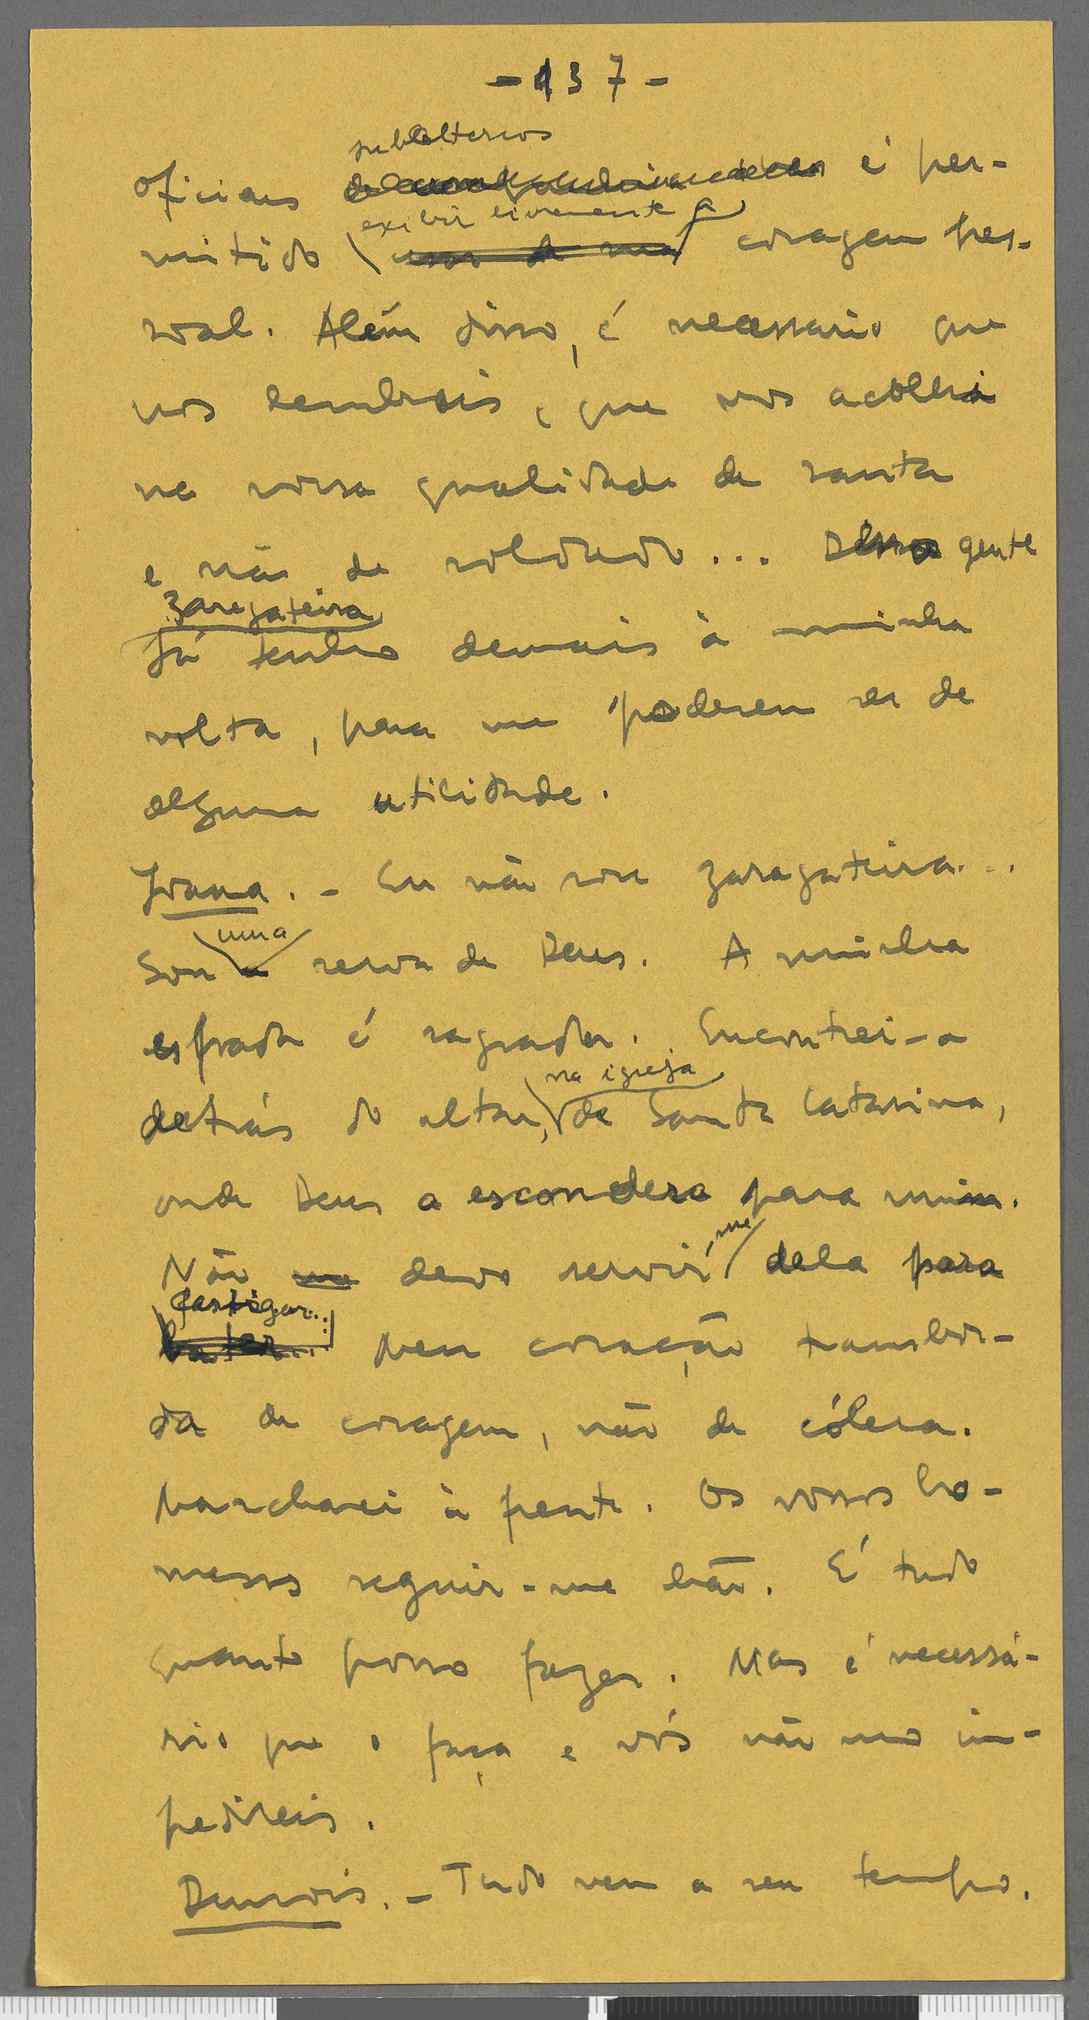 -137-
subalternos
oficiais é per-
exibir livremente a
mitido usar de sua coragem pes-
soal. Além disso, é necessario que
vos lembreis, que vos acolhi
na vossa qualidade de santa
e não de soldado... Dessa gente
zaragateira
já tenho demais à minha
volta, para me poderem ser de
alguma utilidade.
Joana. - Eu não sou zaragateira...
uma
Sou a serva de Deus. A minha
espada é sagrada. Encontrei-a
na igreja
detrás do altar, de Santa Catarina,
onde Deus a escondera para mim.
me
Não me devo servir dela para
castigar...
bater... Meu coração transbor-
da de coragem, não de cólera.
Marcharei à frente. Os vossos ho-
mens seguir-me hão. É tudo
quanto posso fazer. Mas é necessá-
rio que o faça e vós não mo im-
pedireis.
Dunois. - Tudo vem a seu tempo.